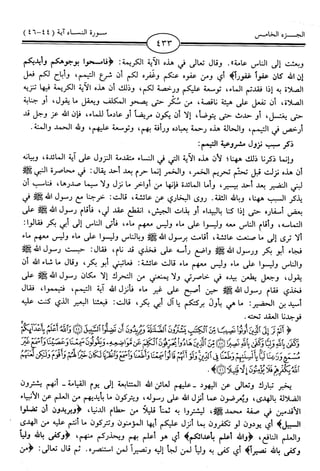 الجزء الخامس
سورة النساء آية (٤٤-٤٦)
٤٣٣
وبعثت إلى الناس عامة». وقال تعالى في هذه الآية الكريمة: ﴿فامسحوا بوجوهكم وأيديكم
إن الله كان عفوا غفورا﴾ أي ومن عفوه عنكم وغفره لكم أن شرع التيمم، وأباح لكم فعل
الصلاة به إذا فقدتم الماء، توسعة عليكم ورخصة لكم، وذلك أن هذه الآية الكريمة فيها تنزيه
الصلاة، أن تفعل على هيئة ناقصة، من سُكْر حتى يصحو المكلف ويعقل ما يقول، أو جنابة
حتى يغتسل، أو حدث حتى يتوضأ، إلا أن يكون مريضاً أو عادماً للماء، فإن الله عز وجل قد
أرخص في التيمم، والحالة هذه رحمة بعباده ورأفة بهم، وتوسعة عليهم، ولله الحمد والمنة.
ذكر سبب نزول مشروعية التيمم:
وإنما ذكرنا ذلك ههنا؛ لأن هذه الآية التي في النساء متقدمة النزول على آية المائدة، وبيانه
أن هذه نزلت قبل تحتّم تحريم الخمر، والخمر إنما حرم بعد أحد يقال: في محاصرة النبي ﷺ
لبني النضير بعد أحد بيسير، وأما المائدة فإنها من أواخر ما نزل ولا سيما صدرها، فناسب أن
يذكر السبب ههنا، وبالله الثقة. روى البخاري عن عائشة، قالت: خرجنا مع رسول الله ﷺ في
بعض أسفاره حتى إذا كنا بالبيداء أو بذات الجيش، انقطع عقد لي، فأقام رسول الله ﷺ على
التماسه، وأقام الناس معه وليسوا على ماء وليس معهم ماء، فأتى الناس إلى أبي بكر فقالوا:
ألا ترى إلى ما صنعت عائشة، أقامت برسول الله ﷺ وبالناس وليسوا على ماء وليس معهم ماء
فجاء أبو بكر ورسول الله ﷺ واضع رأسه على فخذي قد نام، فقال: حبست رسول الله ﷺ
والناس وليسوا على ماء وليس معهم ماء قالت عائشة: فعاتبني أبو بكر، وقال ما شاء الله أن
يقول، وجعل يطعن بيده في خاصرتي ولا يمنعني من التحرك إلا مكان رسول الله ﷺ على
فخذي فقام رسول الله ﷺ حين أصبح على غير ماء فأنزل الله آية التيمم، فتيمموا، فقال
أسيد بن الحضير: ما هي بأول بركتكم يا آل أبي بكر، قالت: فبعثنا البعير الذي كنت عليه
فوجدنا العقد تحته.
﴿أَلَمْ تَرَ إِلَى الَّذِينَ أُوتُوا نَصِيبًا مِنَ الْكِتَابِ يَشْتَرُونَ الضَّلَالَةَ وَيُرِيدُونَ أَنْ تَضِلُّوا السَّبِيلَ وَاللَّهُ أَعْلَمُ بِأَعْدَائِكُمْ
يخبر تبارك وتعالى عن اليهود - عليهم لعائن الله المتتابعة إلى يوم القيامة - أنهم يشترون
الضلالة بالهدى، ويُعرضون عما أنزل الله على رسوله، ويتركون ما بأيديهم من العلم عن الأنبياء
الأقدمين في صفة محمد ﷺ، ليشتروا به ثمناً قليلاً من حطام الدنيا، ﴿ويريدون أن تضلوا
السبيل﴾ أي يودون لو تكفرون بما أنزل عليكم أيها المؤمنون وتتركون ما أنتم عليه من الهدى
والعلم النافع، ﴿والله أعلم بأعدائكم﴾ أي هو أعلم بهم ويحذركم منهم، ﴿وكفى بالله ولياً
وكفى بالله نصيراً﴾ أي كفى به ولياً لمن لجأ إليه ونصيراً لمن استنصره. ثم قال تعالى: ﴿من